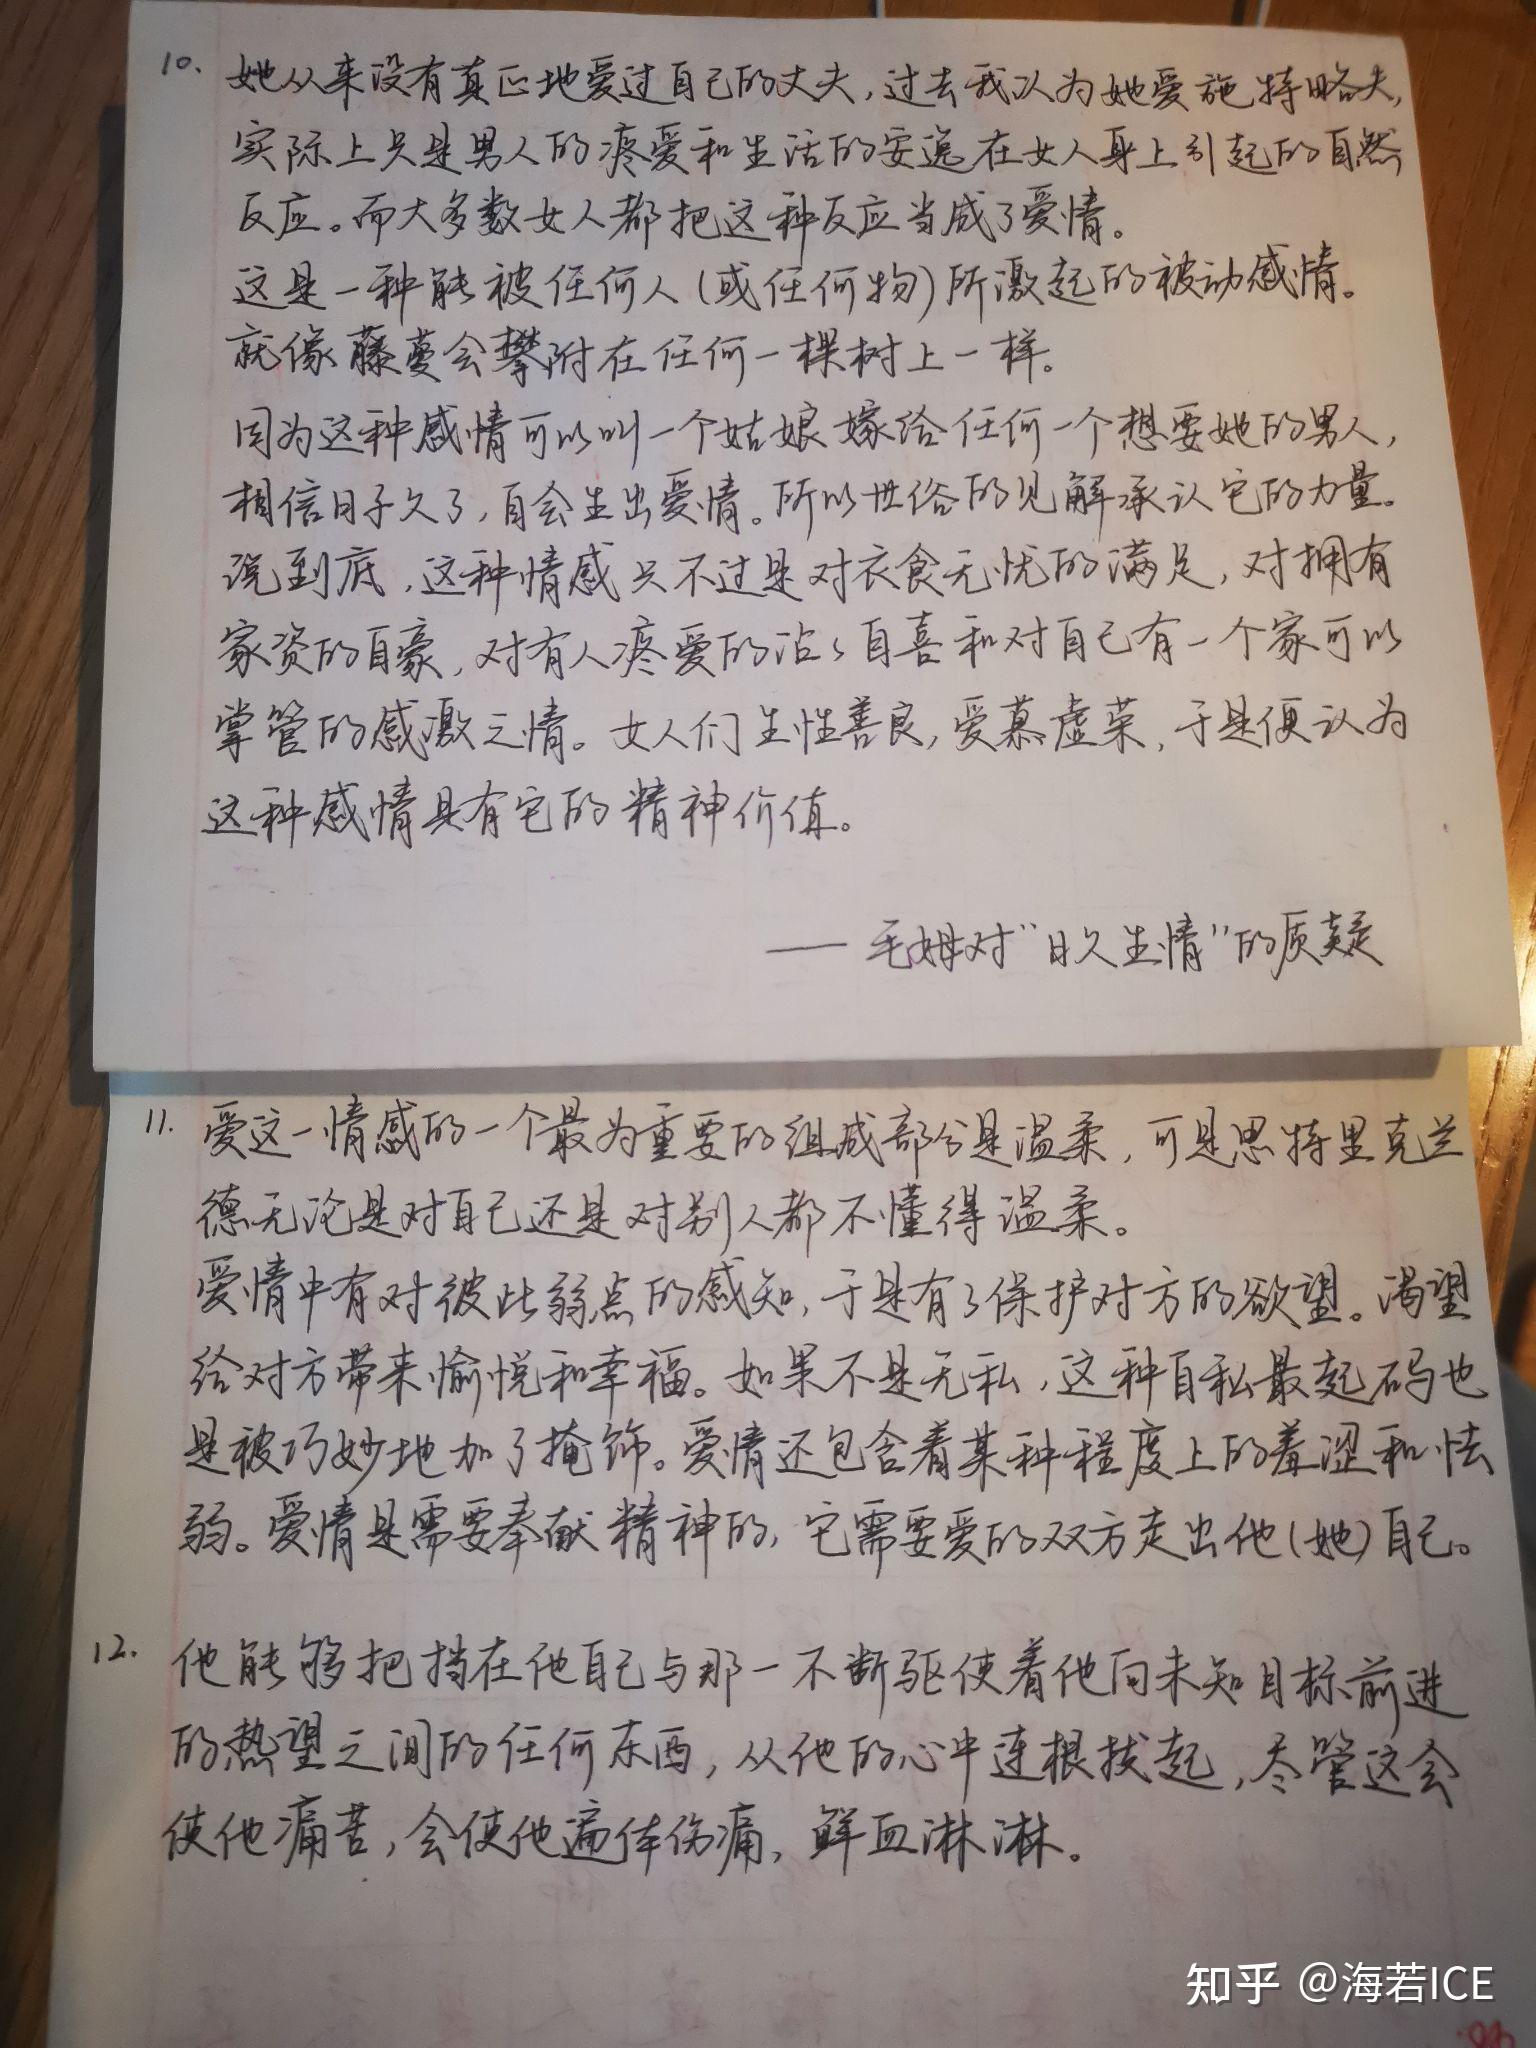 10. 她从来没有真正地爱过自己的丈夫,过去我以为她爱施特略夫,
实际上只是男人的疼爱和生活的安逸在女人身上引起的自然
反应。而大多数女人都把这种反应当成了爱情。
这是一种能被任何人(或任何物)所激起的被动感情。
就像藤蔓会攀附在任何一棵树上一样。
因为这种感情可以叫一个姑娘嫁给任何一个想要她的男人,
相信日子久了,自会生出爱情。所以世俗的见解承认它的力量。
说到底,这种情感只不过是对衣食无忧的满足,对拥有
家资的自豪,对有人疼爱的沾々自喜和对自己有一个家可以
掌管的感激之情。女人们生性善良,爱慕虚荣,于是便认为
这种感情具有它的精神价值。
——毛姆对"日久生情"的质疑
11. 爱这一情感的一个最为重要的组成部分是温柔,可是思特里克兰
德无论是对自己还是对别人都不懂得温柔。
爱情中有对彼此弱点的感知,于是有了保护对方的欲望。渴望
给对方带来愉悦和幸福。如果不是无私,这种自私最起码也
是被巧妙地加了掩饰。爱情还包含着某种程度上的羞涩和怯
弱。爱情是需要奉献精神的,它需要爱的双方走出他(她)自己。
12. 他能够把挡在他自己与那一不断驱使着他向未知目标前进
的热望之间的任何东西,从他的心中连根拔起,尽管这会
使他痛苦,会使他遍体伤痛,鲜血淋淋。
知乎 @海若ICE